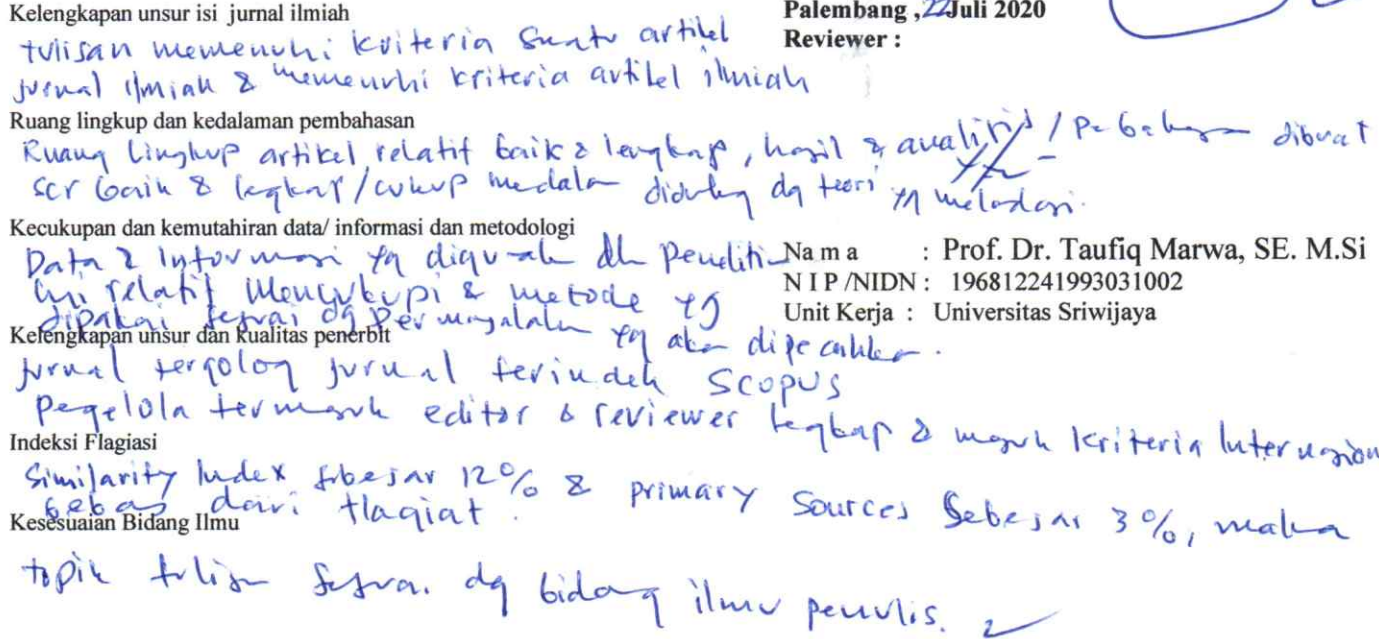 Kelengkapan unsur isi jurnal ilmiah
Palembang , 22 Juli 2020
Reviewer :
tulisan memenuhi kriteria suatu artikel
jurnal ilmiah & memenuhi kriteria artikel ilmiah
Ruang lingkup dan kedalaman pembahasan
Ruang lingkup artikel relatif baik & lengkap, hasil & analisis / pebahasan dibuat
scr baik & lengkap/cukup medalam didukung dg teori yg
Kecukupan dan kemutahiran data/ informasi dan metodologi
Data & informasi yg digunakan dlm penelitian
ini relatif mencukupi & metode yg
dipakai sesuai dg permasalahan yg akan dipecahkan.
N a m a : Prof. Dr. Taufiq Marwa, SE. M.Si
N I P /NIDN : 196812241993031002
Unit Kerja : Universitas Sriwijaya
Kelengkapan unsur dan kualitas penerbit
jurnal tergolong jurnal terindek Scopus
Pegelola termasuk editor & reviewer legkap & masuk kriteria Internasion
Indeksi Flagiasi
Similarity Index sebesar 12% & primary sources sebesar 3%, maka
bebas dari flagiat.
Kesesuaian Bidang Ilmu
topik tulisan sesuai dg bidang ilmu penulis.